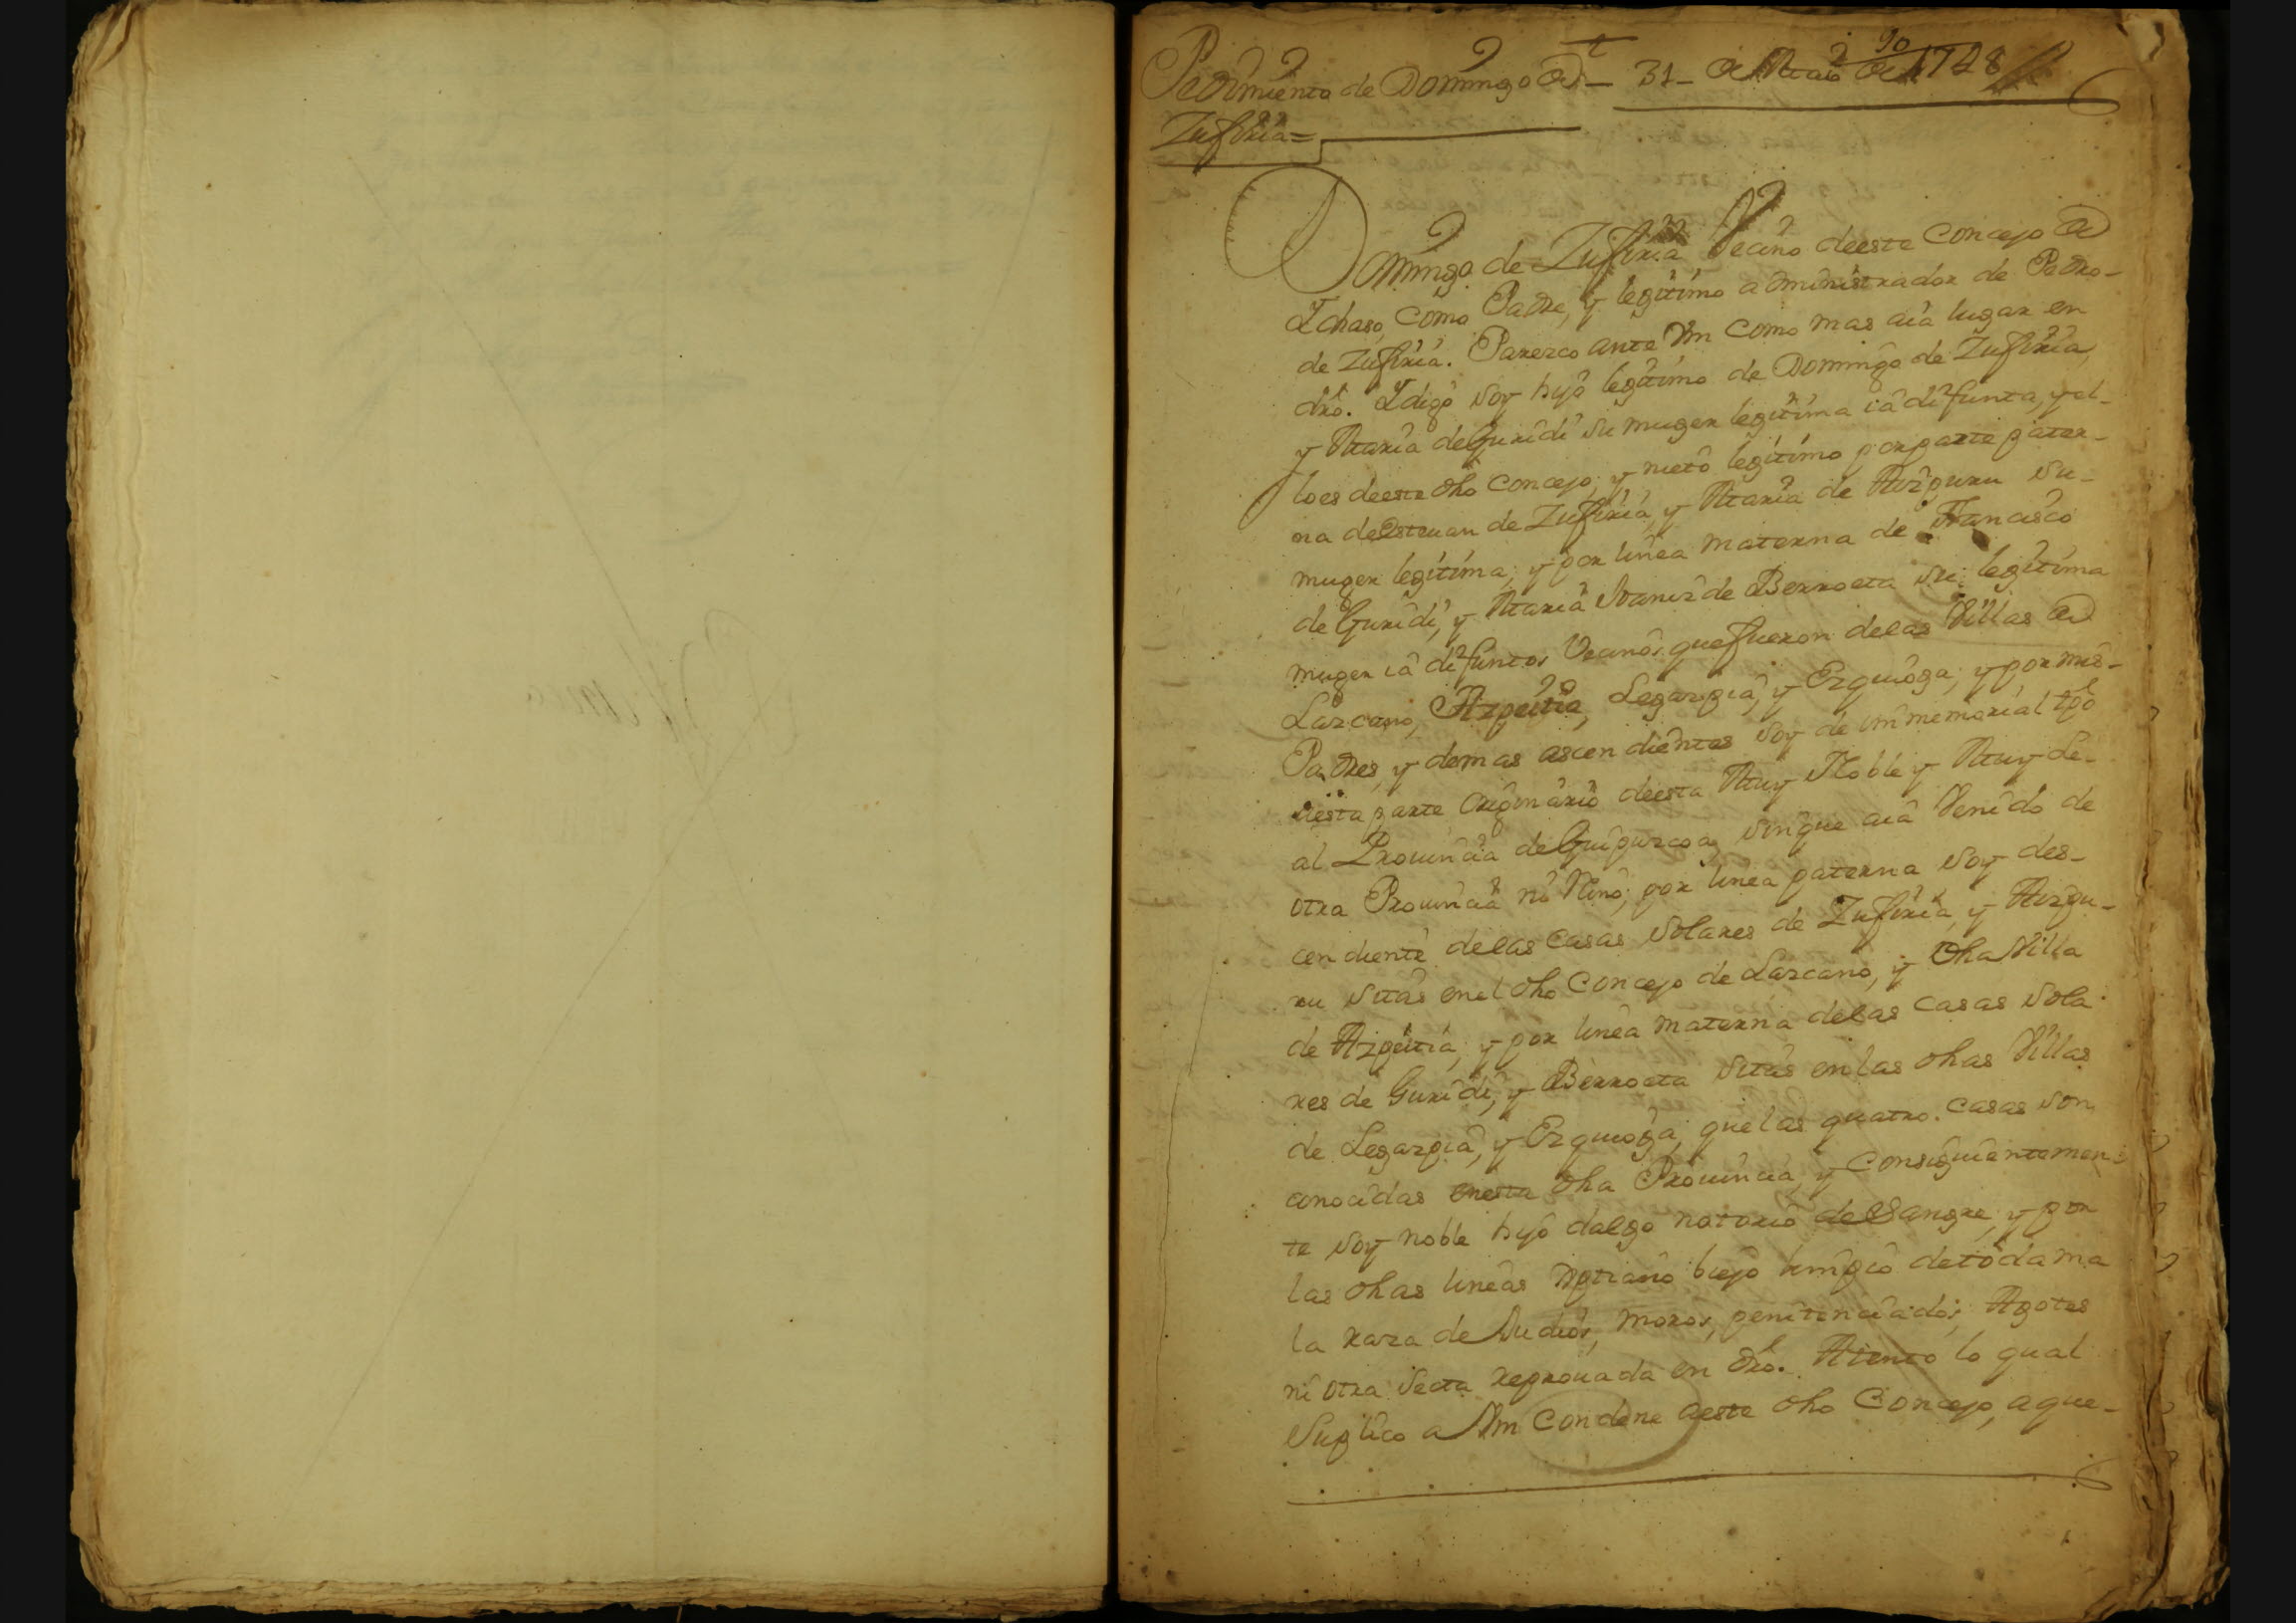 Pedimiento de Domingo de — 31 – de Maio de 1728
Zufiria =
Domingo de Zufiria Vecino deeste Concejo de
Ichaso, como Padre, y legitimo administrador de Pedro-
de Zufiria. Parezco ante Vm como mas aia lugar en
dro. Idigo soy hijo legitimo de Domingo de Zufiria,
y Maria deGuridi su muger legitima ia difunta, yel-
loes deeste dho Concejo; y nieto legitimo porparte pater-
na deEsteuan de Zufiria, y Maria de Aizpuru su-
muger legitima; y por linea materna de Francisco
de Guridi, y Maria de Berroeta su legitima
muger ia difuntos Vecinos quefueron delas Villas de
Lazcano, Azpeitia, Legazpia, y Ezquioga; y por mis-
Padres, y demas ascendientes soy de immemorial tpo
aesta parte Originario deesta Muy Noble y Muy Le-
al Prouincia deGuipuzcoa, sinque aia Venido de
otra Prouincia ni Reino; por linea paterna soy des-
cendiente delas casas solares de Zufiria, y Aizpu-
ru sitas enel dho Concejo de Lazcano, y dha Villa
de Azpeitia; y por linea materna delas casas sola-
res de Guridi, y Berroeta sitas enlas dhas Villas
de Legazpia, y Ezquioga; quelas quatro casas son
conocidas enesta dha Prouincia, y Consiguientemen-
te soy noble hijo dalgo notorio deSangre; y por
las dhas lineas Xptiano biejo limpio detoda ma
la raza de Judios, moros, penitenciados, Agotes
ni otra secta reprouada en dro. Atento lo qual
Suplico a Vm Condene aeste dho Concejo, aque-